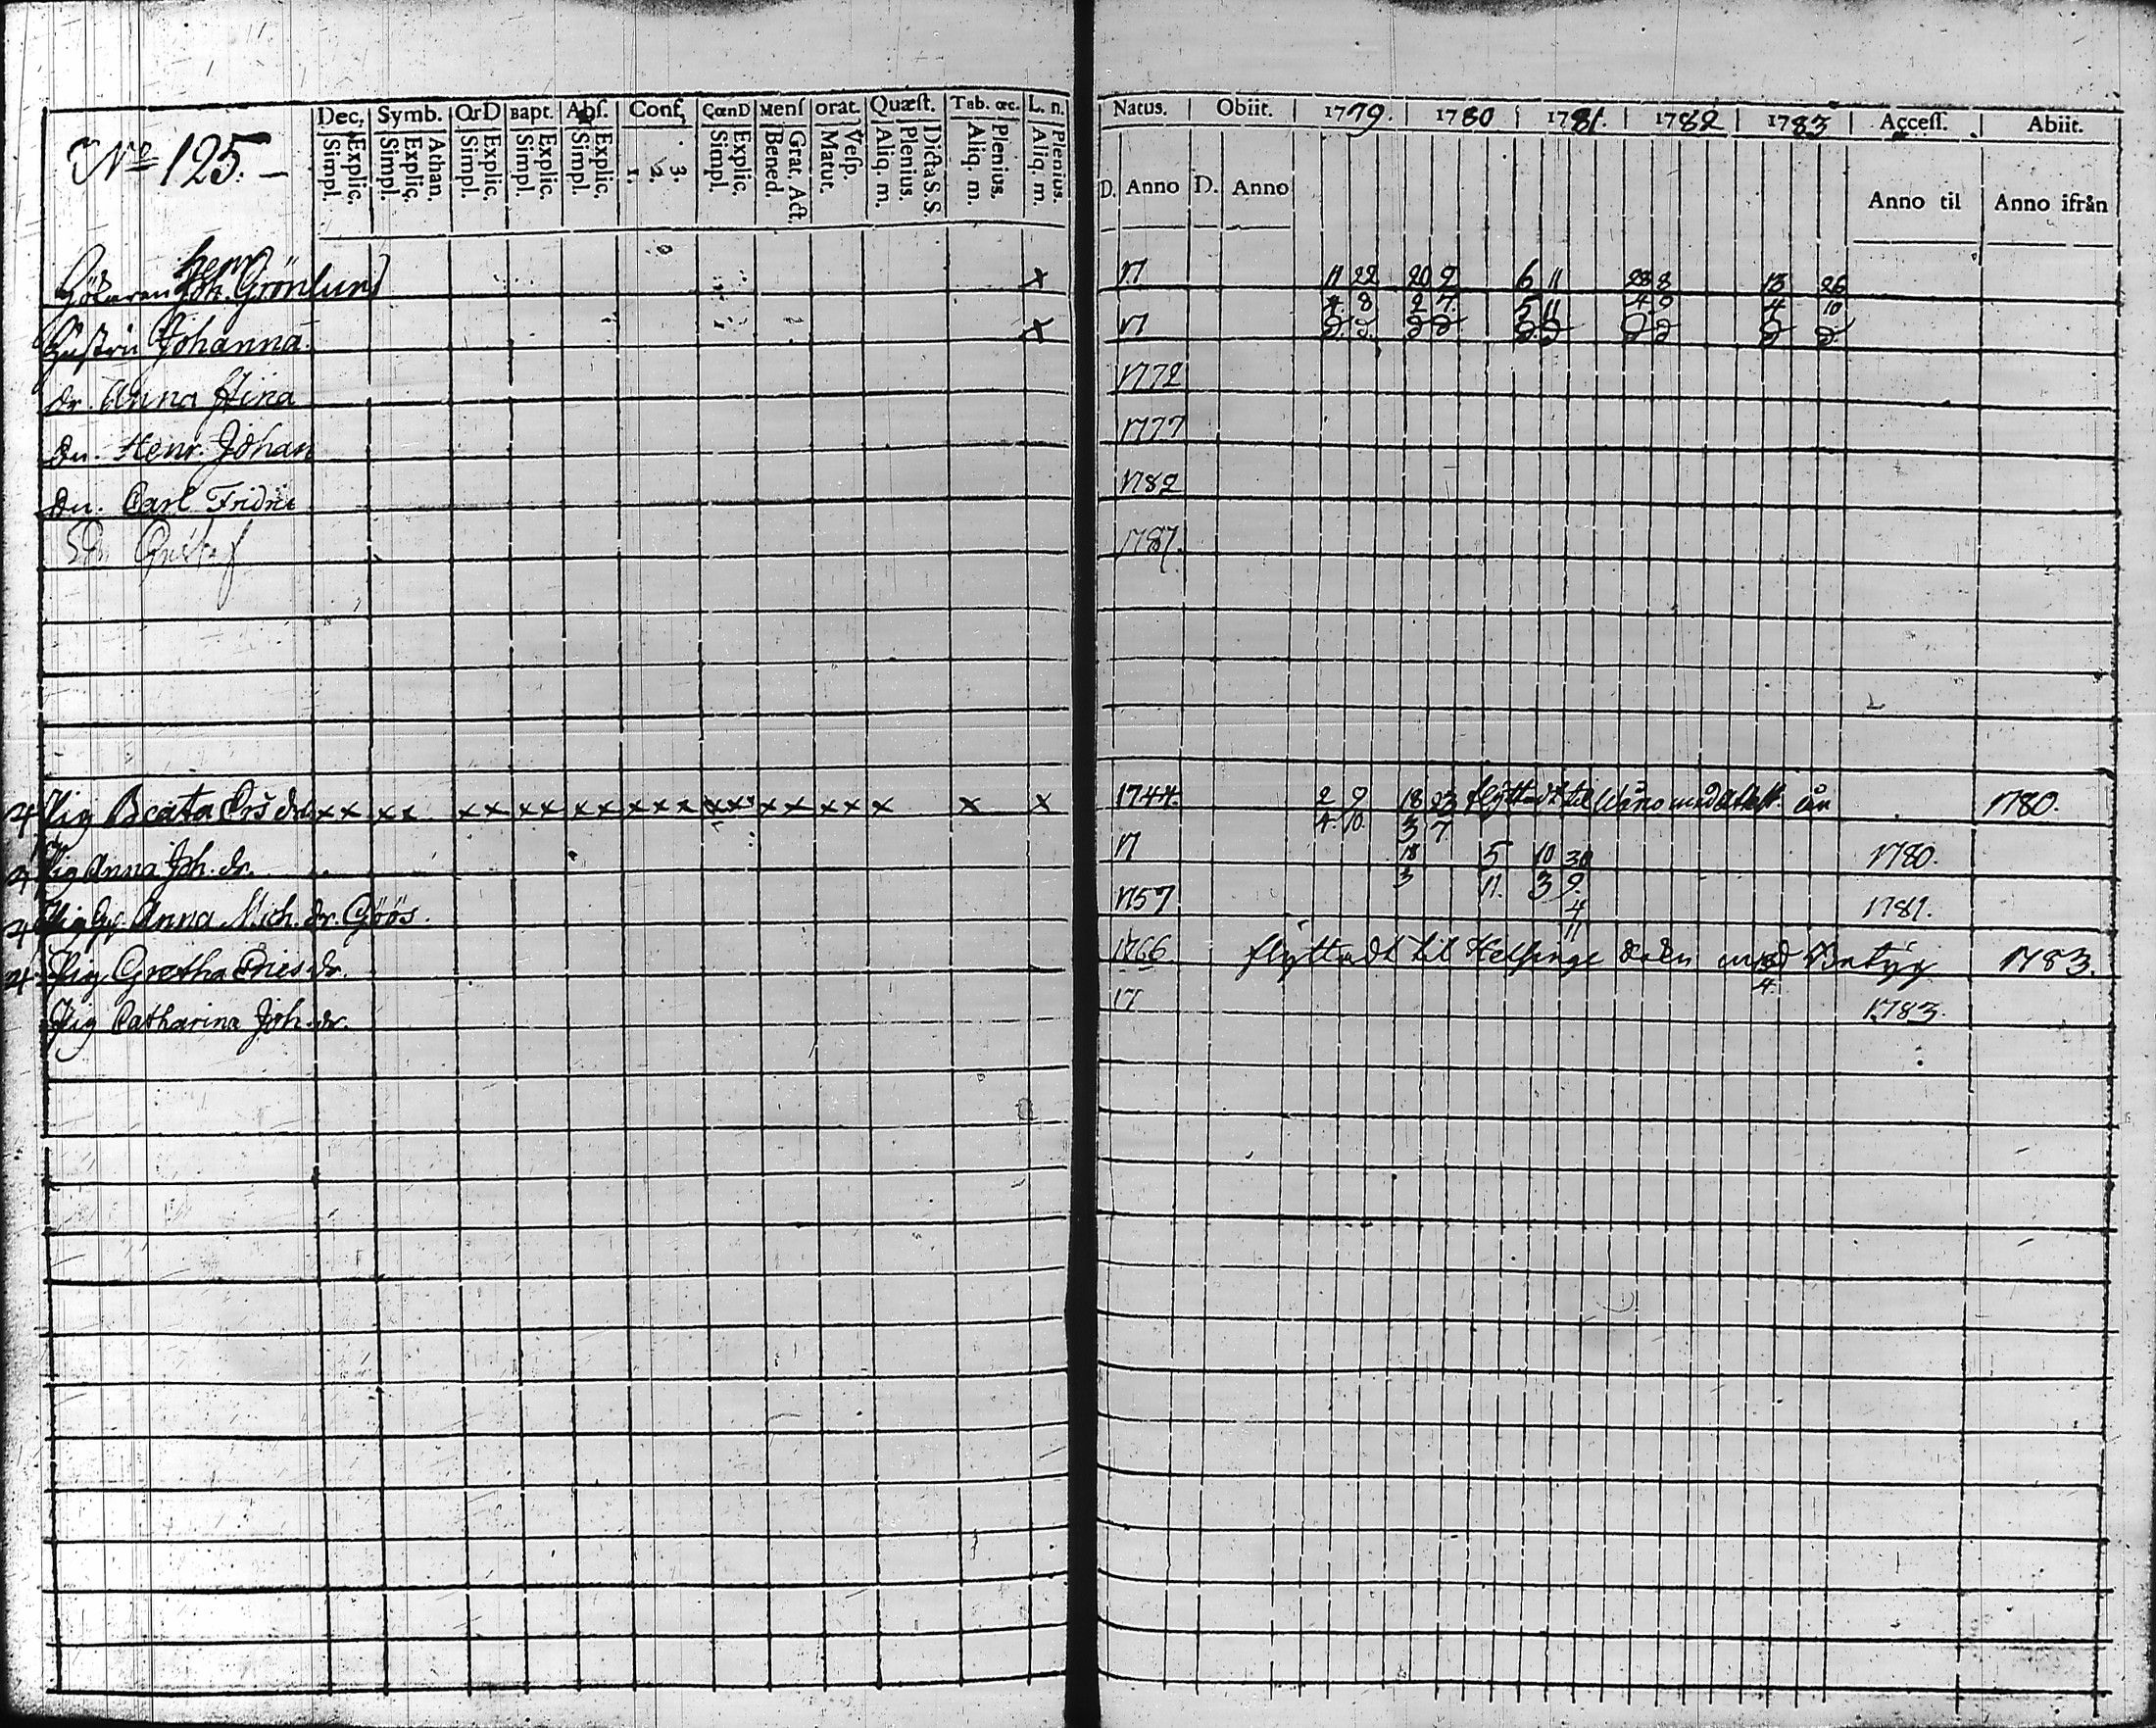 Nº 125.
Dec. Symb. OrD Bapt. Abſ. Conf. CœnD Menſ orat. Quæſt. Tab. œc. L. n.
Simpl. Explic. Simpl. Explic. Athan. Simpl. Explic. Simpl. Explic. Simpl. Explic. 1. 2. 3. Simpl. Explic. Bened. Grat. Act. Matut. Veſp. Aliq. m. Plenius. Dicta S. S. Aliq. m. Plenius. Aliq. m. Plenius.
Natus. Obiit. 1779. 1780 1781. 1782 1783 Acceſſ. Abiit.
D. Anno D. Anno Anno til Anno ifrån
herr
Joh. Grönlund x 17 11 22 20 2 6 11 28 8 13 26
4 8 2 7 5 11 4 9 4 10
Hustru Johanna. x 17 D. D. D D D D D D D D
dr. Anna Stina 1772
Henr. Johan 1777
Carl Fridric 1782
Gustaf 1787.
Pig Beata Ers dr x x x x x x x x x x x x x x x x x x x x x x x 1744. 2 9 18 23 flyttadt til med 1780.
4. 10. 3 7
Pig Anna Joh. dr. 17 18 5 10 30 1780.
3 11. 3 9.
Anna Mich. dr. Göös. 1757 4 1781.
11
Pig Gretha Ericsdr. 1766 flyttadt til Helsinge med Betyg 1783.
4.
Pig Catharina Joh. dr. 17 1783.